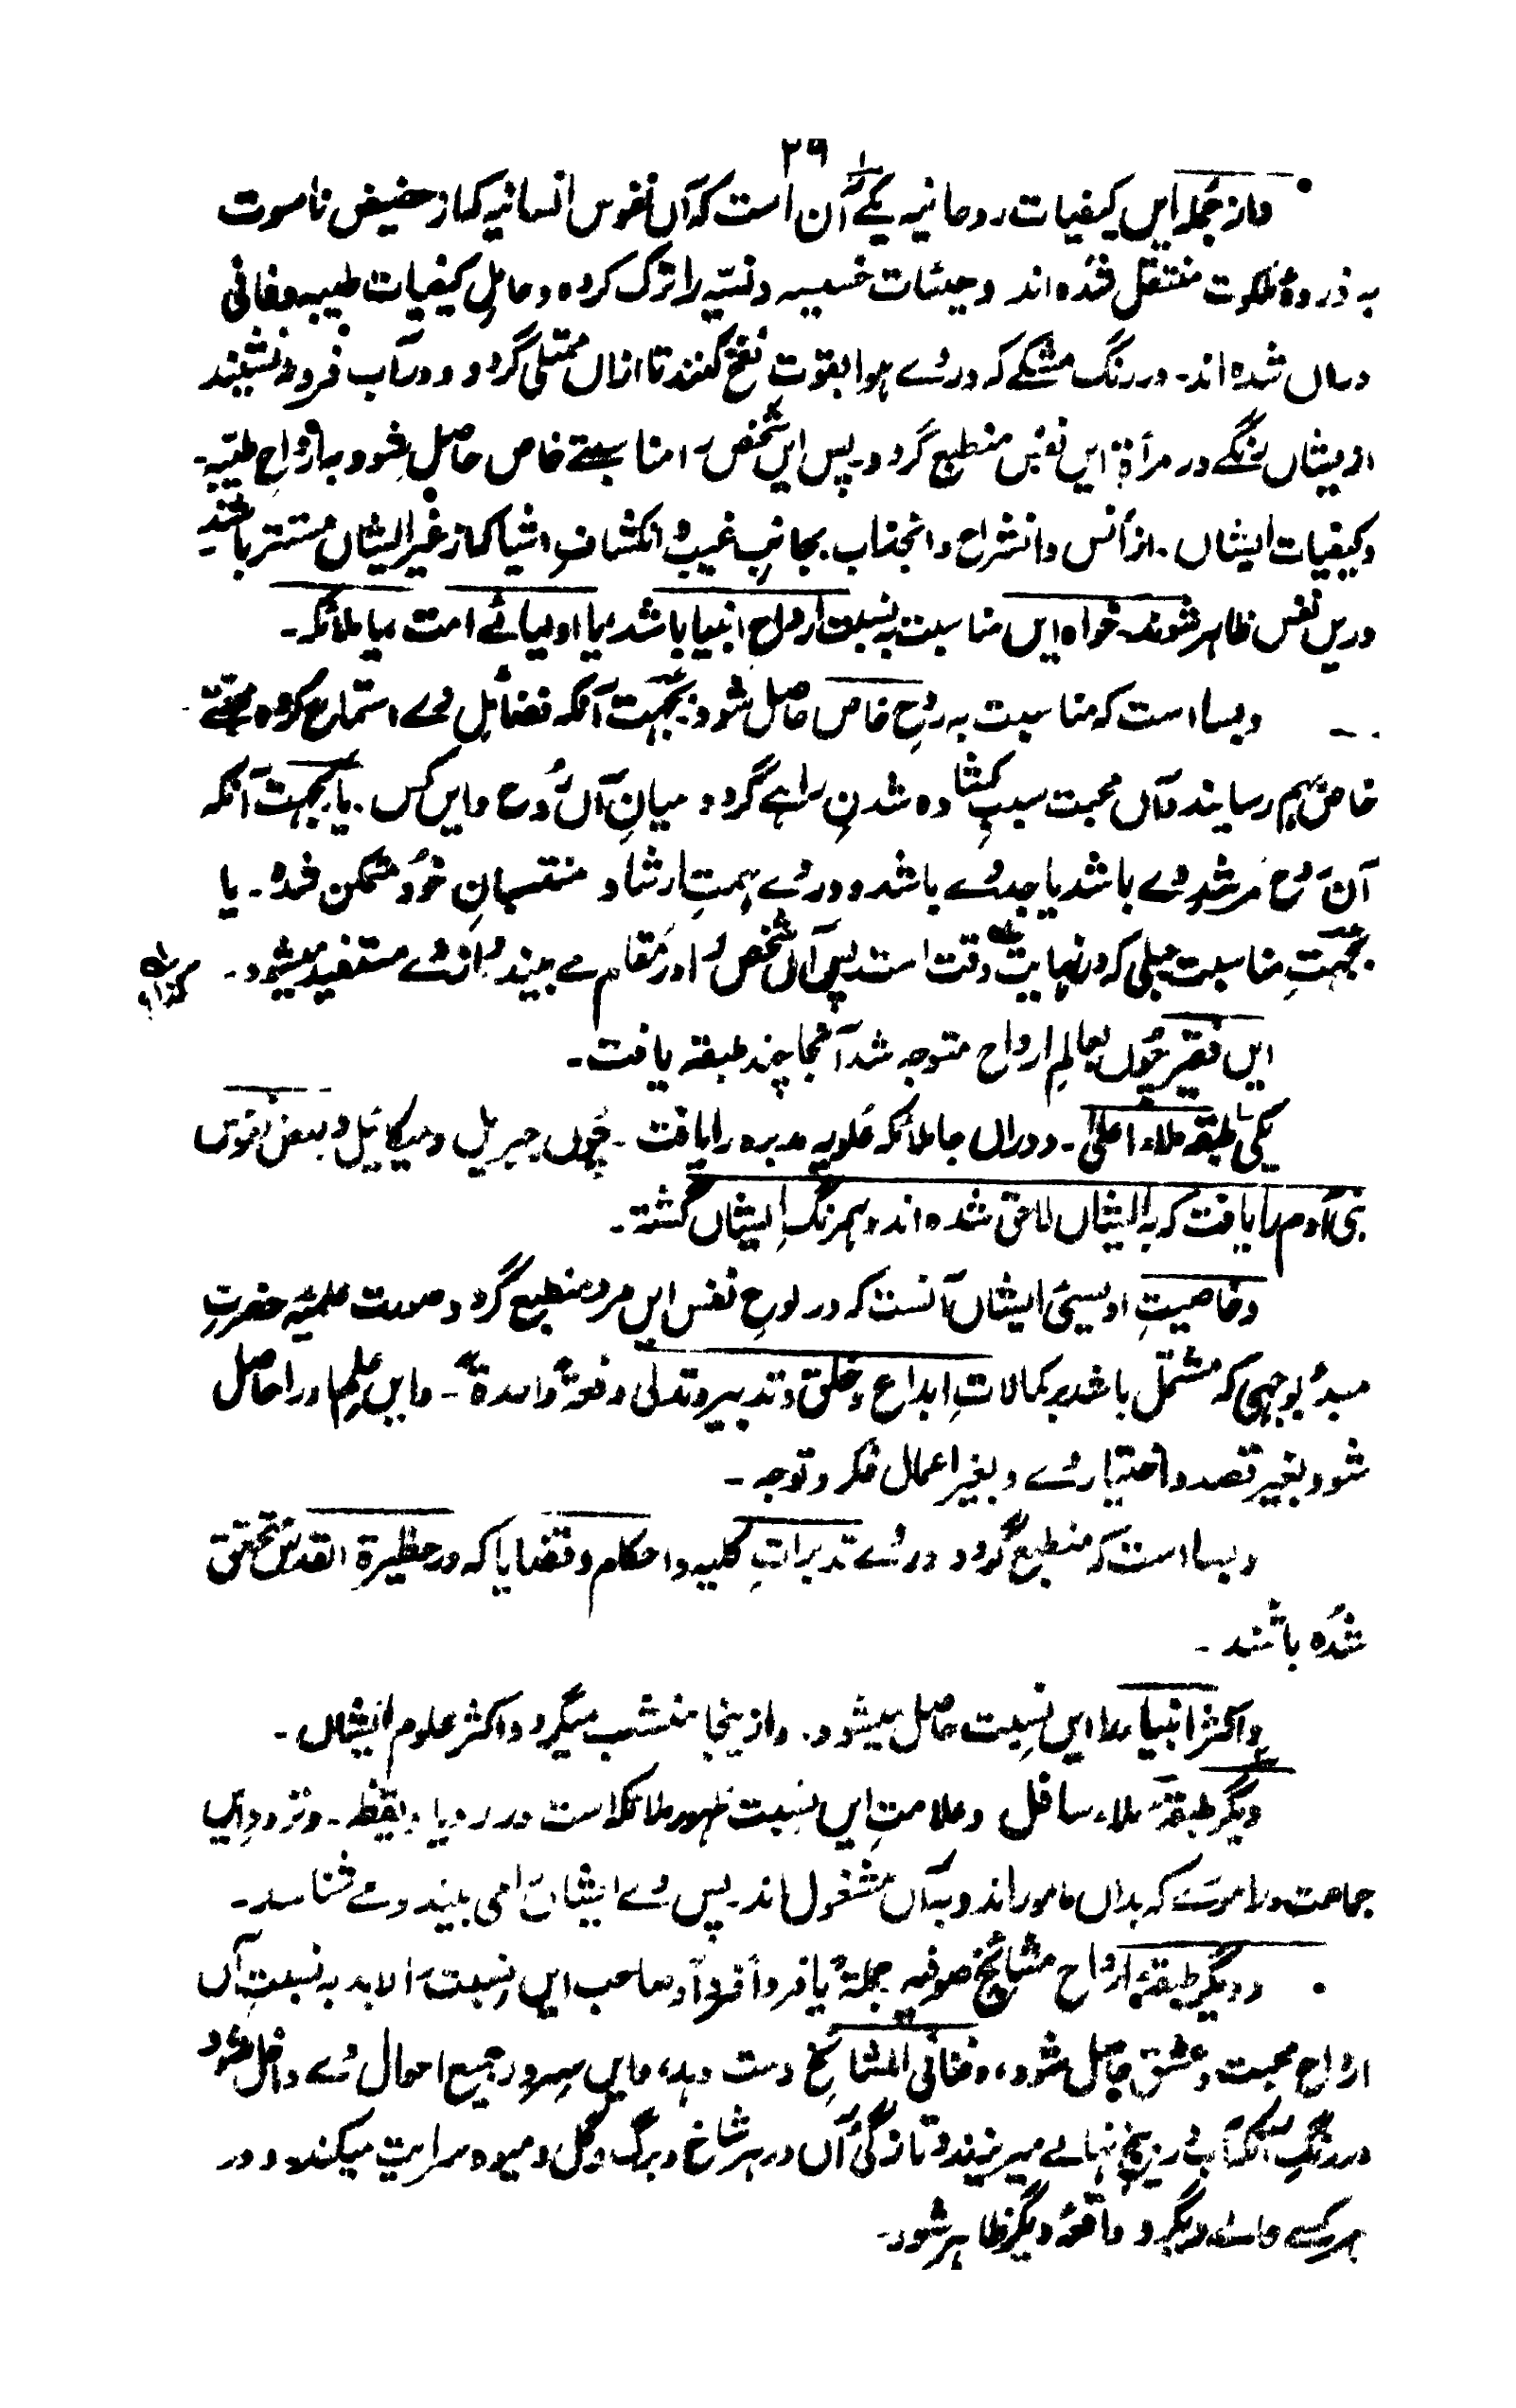 ۲۹
و از جملہ ایں کیفیات روحانیہ یکے آن است کہ آں نفوس انسانیہ کہ از حضیض ناسوت
بہ ذروۂ ملکوت منتقل شدہ اند و حیثیات خسیسہ دنیہ را ترک کردہ و حامل کیفیات طیبہ و فانی
دراں شدہ اند۔ در رنگ مشکے کہ در وے ہوا بقوتِ نفخ کنند تا ازاں ممتلی گردد و در آب فرو نہ نشیند
از یشاں رنگے در مرأۃ ایں نفس منطبع گردد۔ پس ایں شخص را مناسبتے خاص حاصل شود بہ ارواح طیبہ۔
و کیفیات ایشاں۔ از اُنس و انشراح و انجذاب بجانبِ غیب و انکشافِ اشیا کہ از غیر ایشاں مستتر باشد۔
دریں نفس ظاہر شوند۔ خواہ ایں مناسبت بہ نسبت ارواح انبیا باشد یا اولیائے امت یا ملائکہ۔
و بسا است کہ مناسبت بہ روح خاص حاصل شود بجہت آنکہ فضائل وے استماع کردہ محبتے
خاص بہم رسایند و آں محبت سببِ کشادہ شدنِ راہے گردد میانِ آں رُوح و ایں کس۔ یا بجہت آنکہ
آں رُوح مرشد وے باشد یا جد وے باشد و در وے ہمتِ ارشاد منتسبانِ خود متمکن شدہ۔ یا
بجہتِ مناسبت جبلی کہ در نہایت دقت است پس آں شخص را در مقام مے بیند و از وے مستفید میشود۔
ایں فقیر چوں بعالمِ ارواح متوجہ شد آنجا چند طبقہ یافت۔
یکی طبقہ ملاء اعلیٰ۔ و دراں جا ملائکہ علویہ مدبرہ را یافت۔ چوں جبریل و میکائیل و بعض نفوس
بنی آدم را یافت کہ بہ ایشاں لاحق شدہ اند و ہمرنگِ ایشاں گشتہ۔
و خاصیتِ اویسیٔ ایشاں آنست کہ در لوحِ نفس ایں مرد منطبع گردد صورت علمیہ حضرتِ
مبدءٔ بوجہی کہ مشتمل باشد بر کمالاتِ ابداع و خلق و تدبیر و تدلی دفعۃً واحدۃً۔ و ایں علم او را حاصل
شود بغیر قصد و اختیار وے و بغیر اعمال فکر و توجہ۔
و بسا است کہ منطبع گردد در وے تدبراتِ کلیہ و احکام و قضایا کہ در حظیرۃ القدس متحقق
شدہ باشند۔
و اکثر انبیا را ایں نسبت حاصل میشود۔ و از ینجا منشعب میگردد اکثر علوم ایشاں۔
دیگر طبقۂ ملاء سافل و علامتِ ایں نسبت ظہور ملائکہ است در رویا و یقظہ۔ و تردد ایں
جماعت در امورے کہ بداں مامور اند و بآں مشغول اند۔ پس وے ایشاں را می بیند و مے شناسد۔
و دیگر طبقۂ ارواح مشائخ صوفیہ جملۃً یا فرداً فرداً و صاحب ایں نسبت را لابد بہ نسبتِ آں
ارواح محبت و عشق حاصل شود، و فنا فی المشائخ دست دہد، و ایں سر در جمیع احوال وے داخل شود
در رنگِ آنکہ آب در بیخ نہالے میریزند و تازگیٔ آں در ہر شاخ و برگ و گل و میوہ سرایت میکند و در
ہر کسے حالت دیگر و واقعۂ دیگر ظاہر شود۔